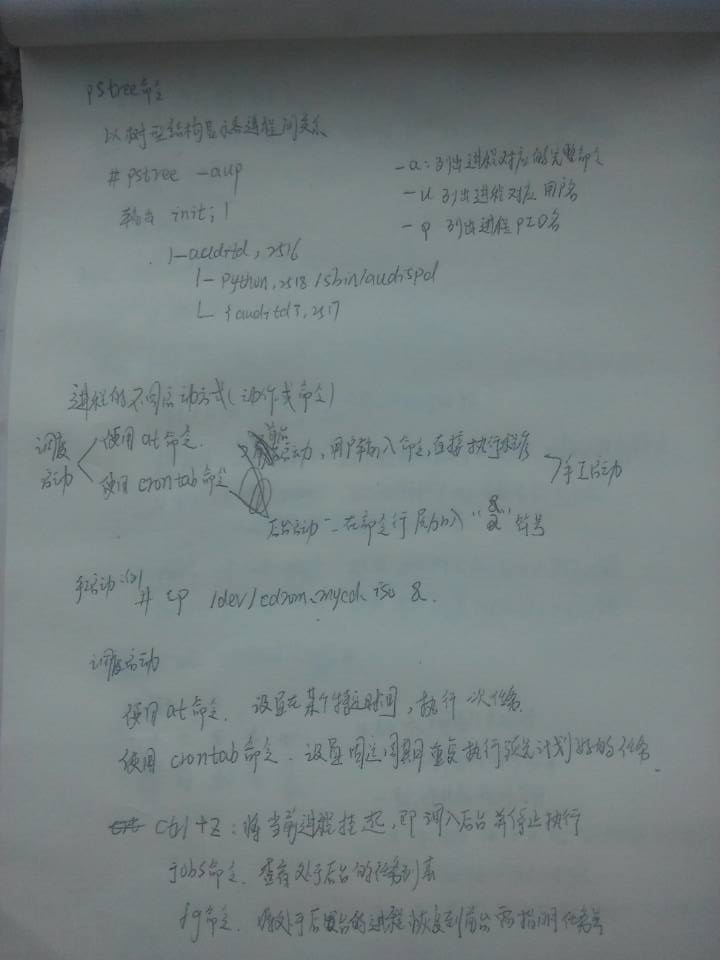 pstree命令
以树型结构显示各进程间关系
# pstree -aup
-a：列出进程对应的完整命令
-u 列出进程对应用户名
-p 列出进程PID名
输出 init,1
|-auditd,2516
|-python,2518 /sbin/audispd
└ {auditd},2517
进程的不同启动方式(动作或命令)
调度启动
使用at命令.
使用crontab命令
启动，用户输入命令，直接执行程序
手工启动
后台启动 - 在命令行尾加入"&"符号
手启动:例
# cp /dev/cdrom mycd.iso &.
调度启动
使用at命令. 设置在某个特定时间，执行一次任务.
使用crontab命令. 设置固定周期重复执行预先计划好的任务.
ctrl+z：将当前进程挂起，即调入后台并停止执行
jobs命令. 查看处于后台的任务列表
fg命令. 将处于后台的进程恢复到前台 需指明任务号